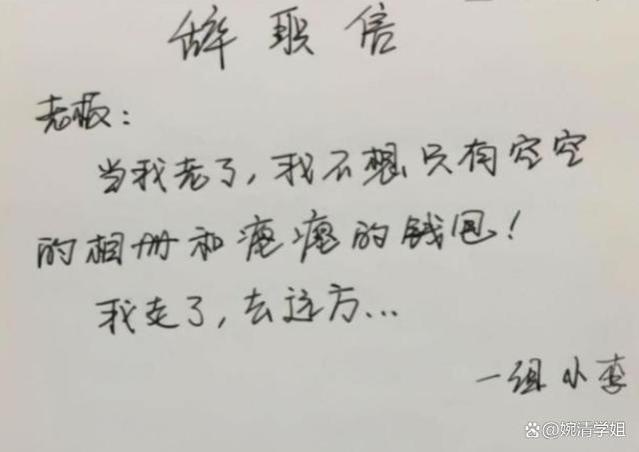 辞职信
老板：
当我老了，我不想只有空空
的相册和瘪瘪的钱包！
我走了，去远方...
一组小李
@婉清学姐